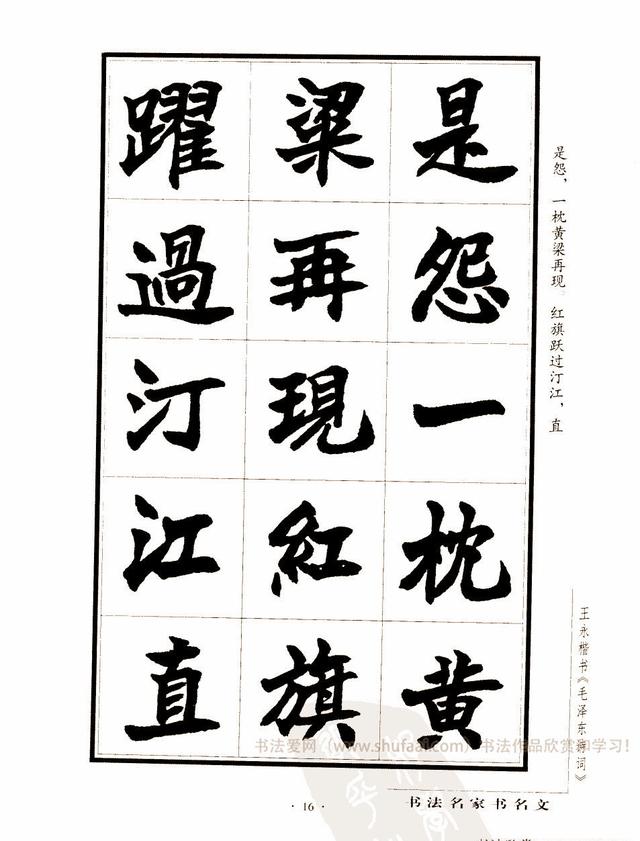 是怨一枕黄
粱再現紅旗
躍過汀江直
是怨,一枕黄粱再现。红旗跃过汀江,直
王永楷书《毛泽东诗词》
书法爱网(www.shufaai.com)书法作品欣赏和学习!
·16·
书法名家书名文